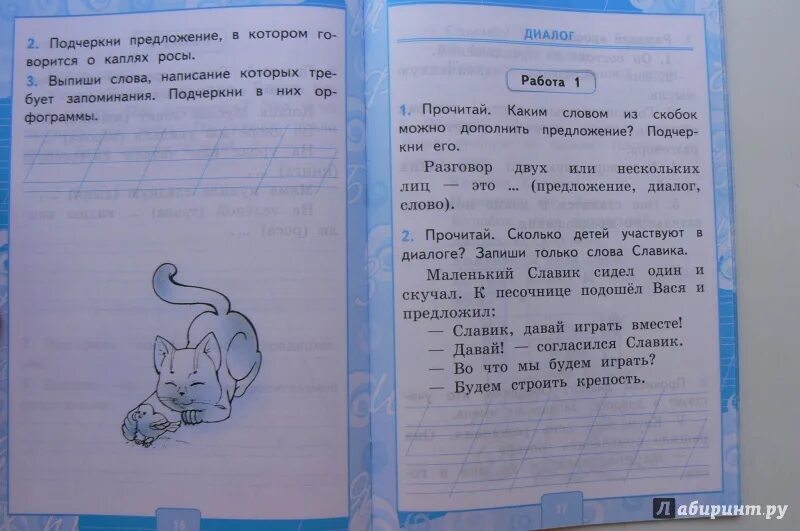 2. Подчеркни предложение, в котором го-
ворится о каплях росы.
3. Выпиши слова, написание которых тре-
бует запоминания. Подчеркни в них ор-
фограммы.
16
ДИАЛОГ
Работа 1
1. Прочитай. Каким словом из скобок
можно дополнить предложение? Подчер-
кни его.
Разговор двух или нескольких
лиц — это ... (предложение, диалог,
слово).
2. Прочитай. Сколько детей участвуют в
диалоге? Запиши только слова Славика.
Маленький Славик сидел один и
скучал. К песочнице подошёл Вася и
предложил:
— Славик, давай играть вместе!
— Давай! — согласился Славик.
— Во что мы будем играть?
— Будем строить крепость.
17
Лабиринт.ру